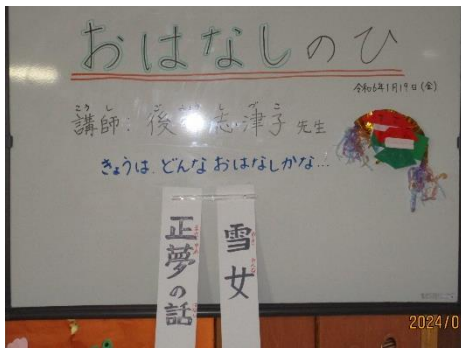 おはなしのひ
令和6年1月19日(金)
こうし
講師: 後 志津子 先生
きょうは、どんな おはなしかな...
雪女
正夢の話
2024/0